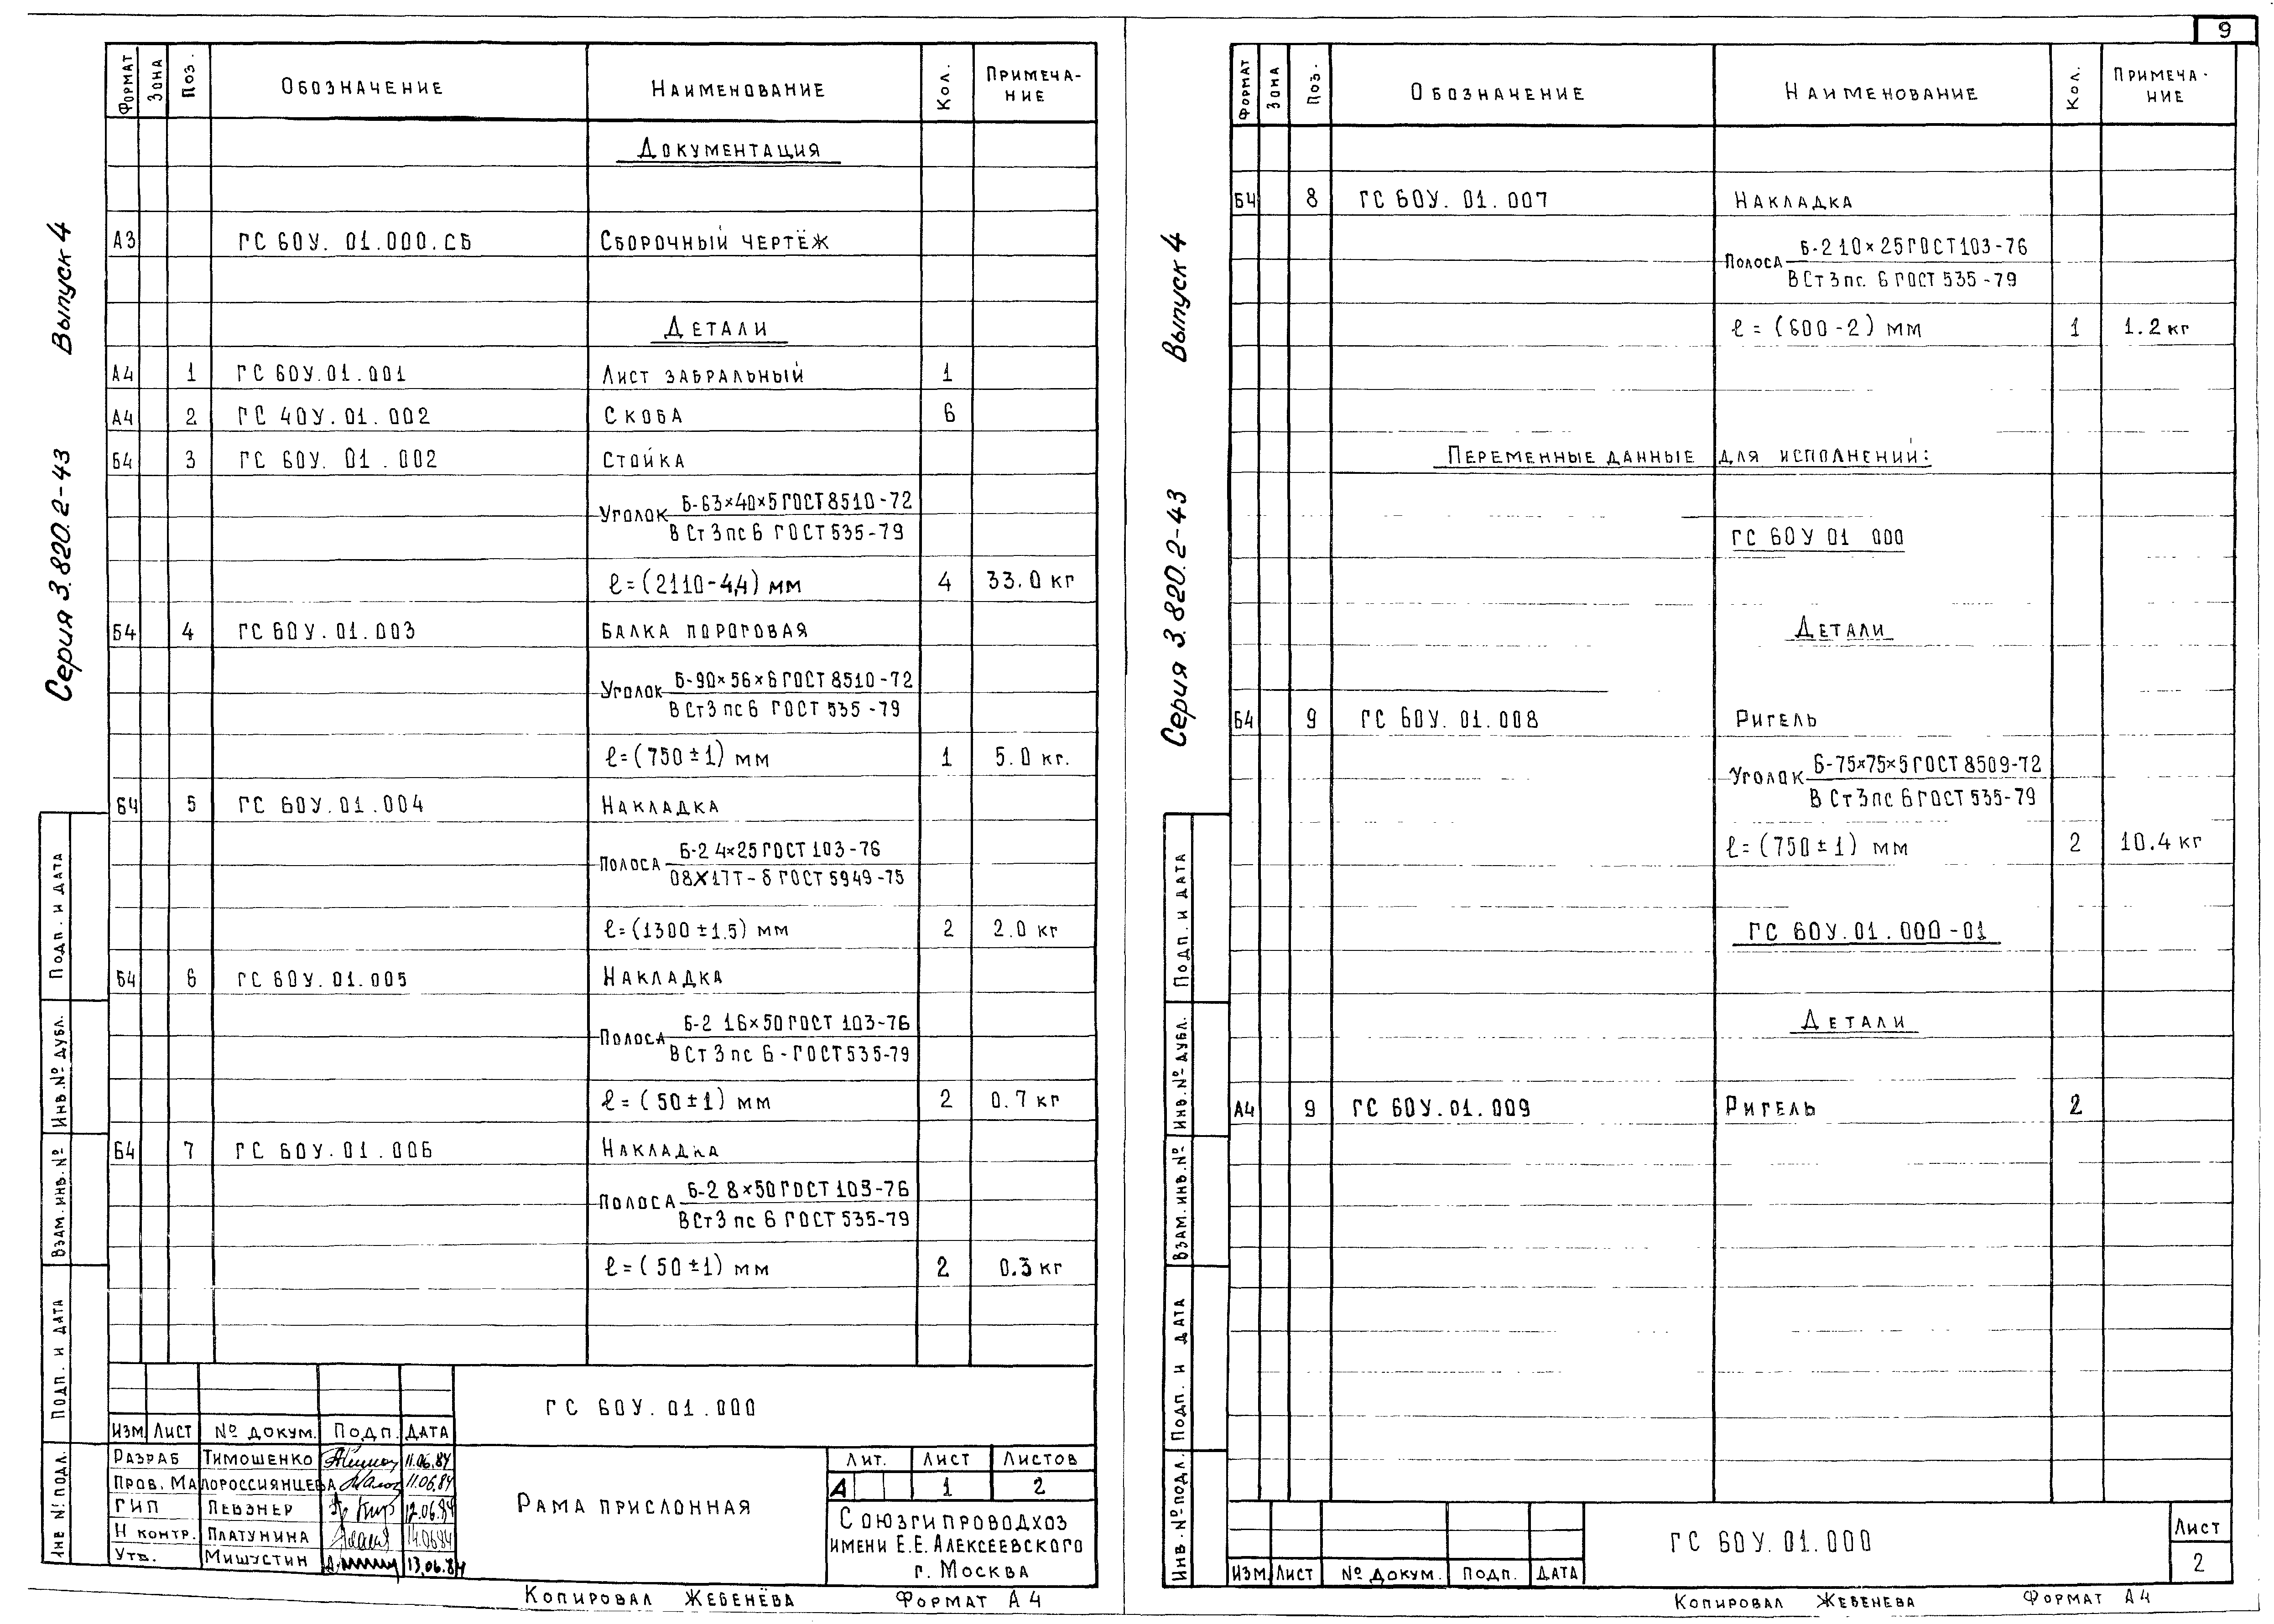 9
Серия 3.820.2-43 Выпуск 4
Формат Зона Поз. Обозначение Наименование Кол. Примеча-
ние
Документация
А3 ГС 60У. 01.000.СБ Сборочный чертёж
Детали
А4 1 ГС 60У.01.001 Лист забральный 1
А4 2 ГС 40У.01.002 Скоба 6
Б4 3 ГС 60У. 01.002 Стойка
Уголок Б-63×40×5 ГОСТ 8510-72
В Ст3пс6 ГОСТ 535-79
ℓ=(2110-4,4) мм 4 33.0 кг
Б4 4 ГС 60У.01.003 Балка пороговая
Уголок Б-90×56×6 ГОСТ 8510-72
В Ст3пс6 ГОСТ 535-79
ℓ=(750±1) мм 1 5.0 кг.
Б4 5 ГС 60У.01.004 Накладка
Полоса Б-2 4×25 ГОСТ 103-76
08Х17Т-б ГОСТ 5949-75
ℓ=(1300±1.5) мм 2 2.0 кг
Б4 6 ГС 60У.01.005 Накладка
Полоса Б-2 16×50 ГОСТ 103-76
В Ст3пс6-ГОСТ 535-79
ℓ=(50±1) мм 2 0.7 кг
Б4 7 ГС 60У.01.006 Накладка
Полоса Б-2 8×50 ГОСТ 103-76
В Ст3пс6 ГОСТ 535-79
ℓ=(50±1) мм 2 0.3 кг
Инв № подл. Подп. и дата Взам. инв. № Инв. № дубл. Подп. и дата
ГС 60У.01.000
Изм Лист № докум. Подп. Дата
Разраб Тимошенко 11.06.84
Пров. Малороссиянцева 11.06.84
ГИП Певзнер 12.06.84
Н контр. Платунина 14.06.84
Утв. Мишустин 13.06.84
Рама прислонная
Лит. Лист Листов
А 1 2
Союзгипроводхоз
имени Е.Е.Алексеевского
г. Москва
Копировал Жебенёва Формат А4
Серия 3.820.2-43 Выпуск 4
Формат Зона Поз. Обозначение Наименование Кол. Примеча-
ние
Б4 8 ГС 60У.01.007 Накладка
Полоса Б-2 10×25 ГОСТ 103-76
В Ст3пс.6 ГОСТ 535-79
ℓ=(600-2) мм 1 1.2 кг
Переменные данные для исполнений:
ГС 60У 01 000
Детали
Б4 9 ГС 60У.01.008 Ригель
Уголок Б-75×75×5 ГОСТ 8509-72
В Ст3пс6 ГОСТ 535-79
ℓ=(750±1) мм 2 10.4 кг
ГС 60У.01.000-01
Детали
А4 9 ГС 60У.01.009 Ригель 2
Инв. № подл. Подп. и дата Взам. инв. № Инв. № дубл. Подп. и дата
ГС 60У.01.000
Изм Лист № докум. Подп. Дата
Лист
2
Копировал Жебенева Формат А4